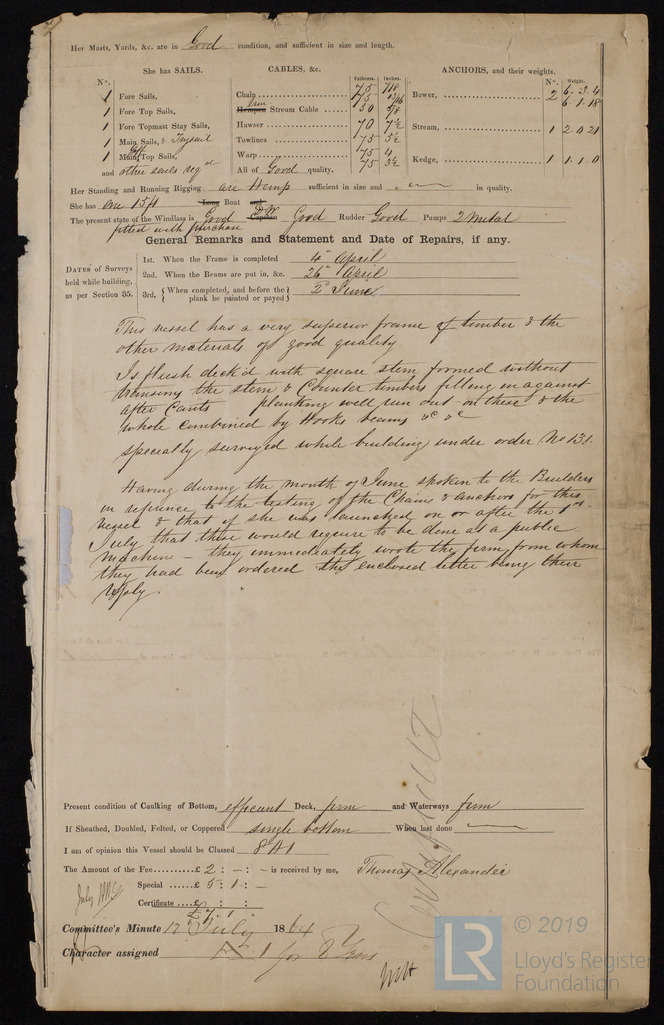 Her Masts, Yards, &c. are in Good condition, and sufficient in size and length.
She has SAILS.
CABLES, &c.
ANCHORS, and their weights.
N°.
1 Fore Sails,
1 Fore Top Sails,
1 Fore Topmast Stay Sails,
1 Main Sails, & Trysail
1 Main Top Sails,
and other sails req
Fathoms. Inches.
Chain 75 7/8
75 13/16
Hempen Stream Cable 50 5/8
Hawser 70 7½
Towlines 75 5½
Warp 75 4
75 3½
All of Good quality.
N°. Weight.
Bower, 2 6.3.4
6.1.18
Stream, 1 2.0.21
Kedge, 1 1.1.0
Her Standing and Running Rigging are Hemp sufficient in size and in quality.
She has one 15ft Long Boat and
The present state of the Windlass is Good Capstan Good Rudder Good Pumps 2 Metal
fitted with purchase
General Remarks and Statement and Date of Repairs, if any.
DATES of Surveys held while building, as per Section 35.
1st. When the Frame is completed 4th April
2nd. When the Beams are put in, &c. 26th April
3rd. { When completed, and before the plank be painted or payed } 2d June
This vessel has a very superior frame of timber & the
other materials of good quality
Is flush deck'd with square stern formed without
transoms the stern & Counter timbers filling in against
after Cants planking well run out on these & the
whole combined by Hooks beams &c &c
specially surveyed while building under order No 131.
Having during the month of June spoken to the Builders
in reference to the testing of the Chains & anchors for this
vessel & that if she was launched on or after the 1st
July that these would require to be done at a public
machine – they immediately wrote the firm from whom
they had been ordered the enclosed letter being their
reply.
Present condition of Caulking of Bottom, efficient Deck, firm and Waterways firm
If Sheathed, Doubled, Felted, or Coppered single bottom When last done
I am of opinion this Vessel should be Classed 8 A1
The Amount of the Fee £ 2 : - : - is received by me, Thomas Alexander
Special £ 5 : 1 : -
Certificate : :
£ 7 . 1 :
Committee's Minute 12th July 1864
Character assigned A 1 for 8 Years
© 2019
LR
Lloyd's Register
Foundation